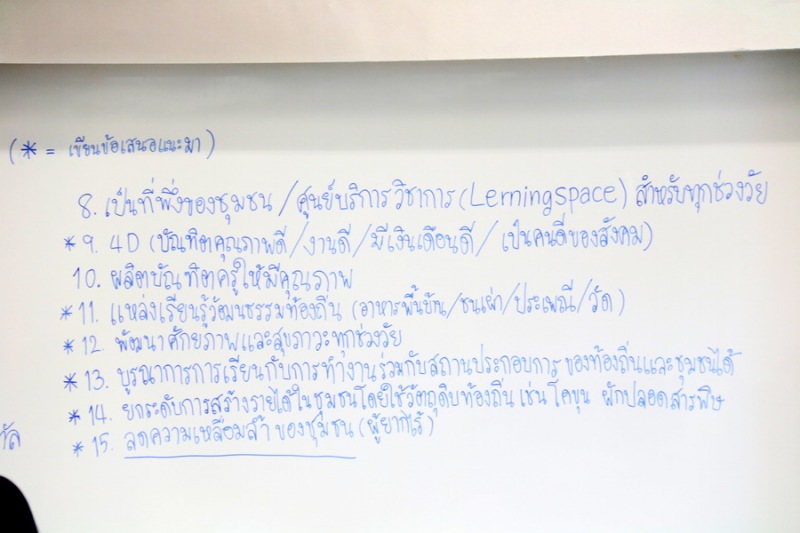 (* = เขียนข้อเสนอแนะมา)
8. เป็นที่พึ่งของชุมชน / ศูนย์บริการวิชาการ (Lerningspace) สำหรับทุกช่วงวัย
* 9. 4D (บัณฑิตคุณภาพดี / งานดี / มีเงินเดือนดี / เป็นคนดีของสังคม)
10. ผลิตบัณฑิตครูให้มีคุณภาพ
* 11. แหล่งเรียนรู้วัฒนธรรมท้องถิ่น (อาหารพื้นบ้าน / ชนเผ่า / ประเพณี / วัด)
* 12. พัฒนาศักยภาพและสุขภาวะทุกช่วงวัย
* 13. บูรณาการการเรียนกับการทำงานร่วมกับสถานประกอบการ ของท้องถิ่นและชุมชนได้
* 14. ยกระดับการสร้างรายได้ในชุมชนโดยใช้วัตถุดิบท้องถิ่น เช่น โคขุน ผักปลอดสารพิษ
* 15. ลดความเหลื่อมล้ำ ของชุมชน (ผู้ยากไร้)